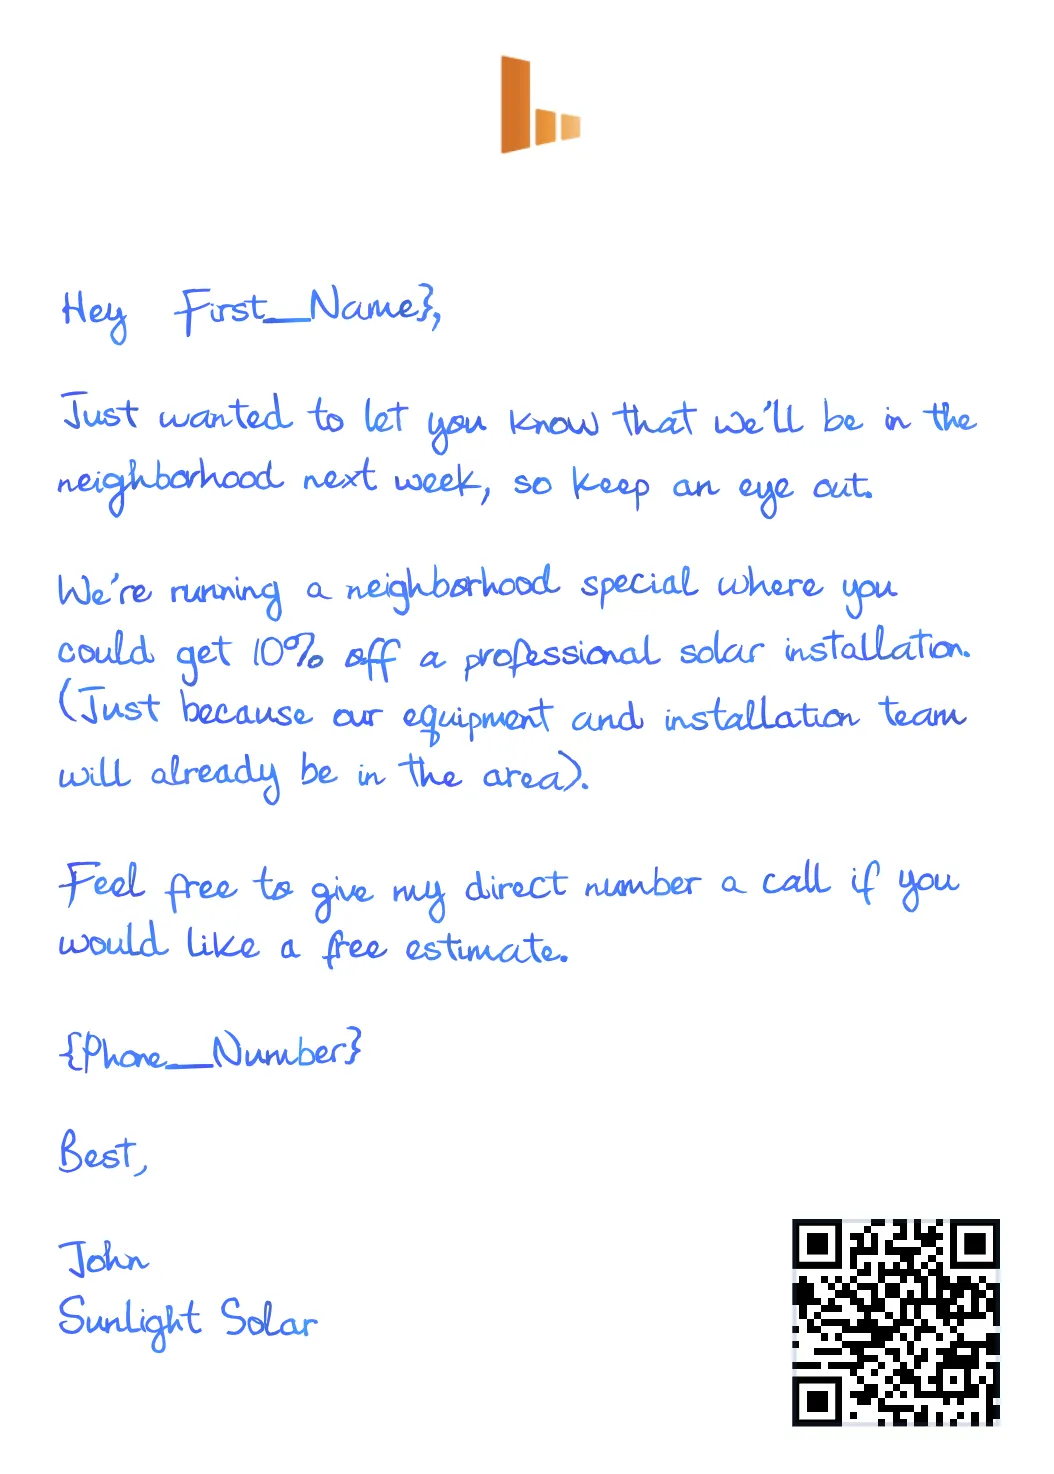 Hey First_Name},
Just wanted to let you know that we'll be in the
neighborhood next week, so keep an eye out.
We're running a neighborhood special where you
could get 10% off a professional solar installation.
(Just because our equipment and installation team
will already be in the area).
Feel free to give my direct number a call if you
would like a free estimate.
{Phone_Number}
Best,
John
Sunlight Solar